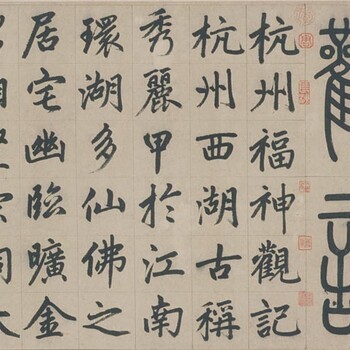 觀記
杭州福神觀記
杭州西湖古稱
秀麗甲於江南
環湖多仙佛之
居宅幽臨曠金